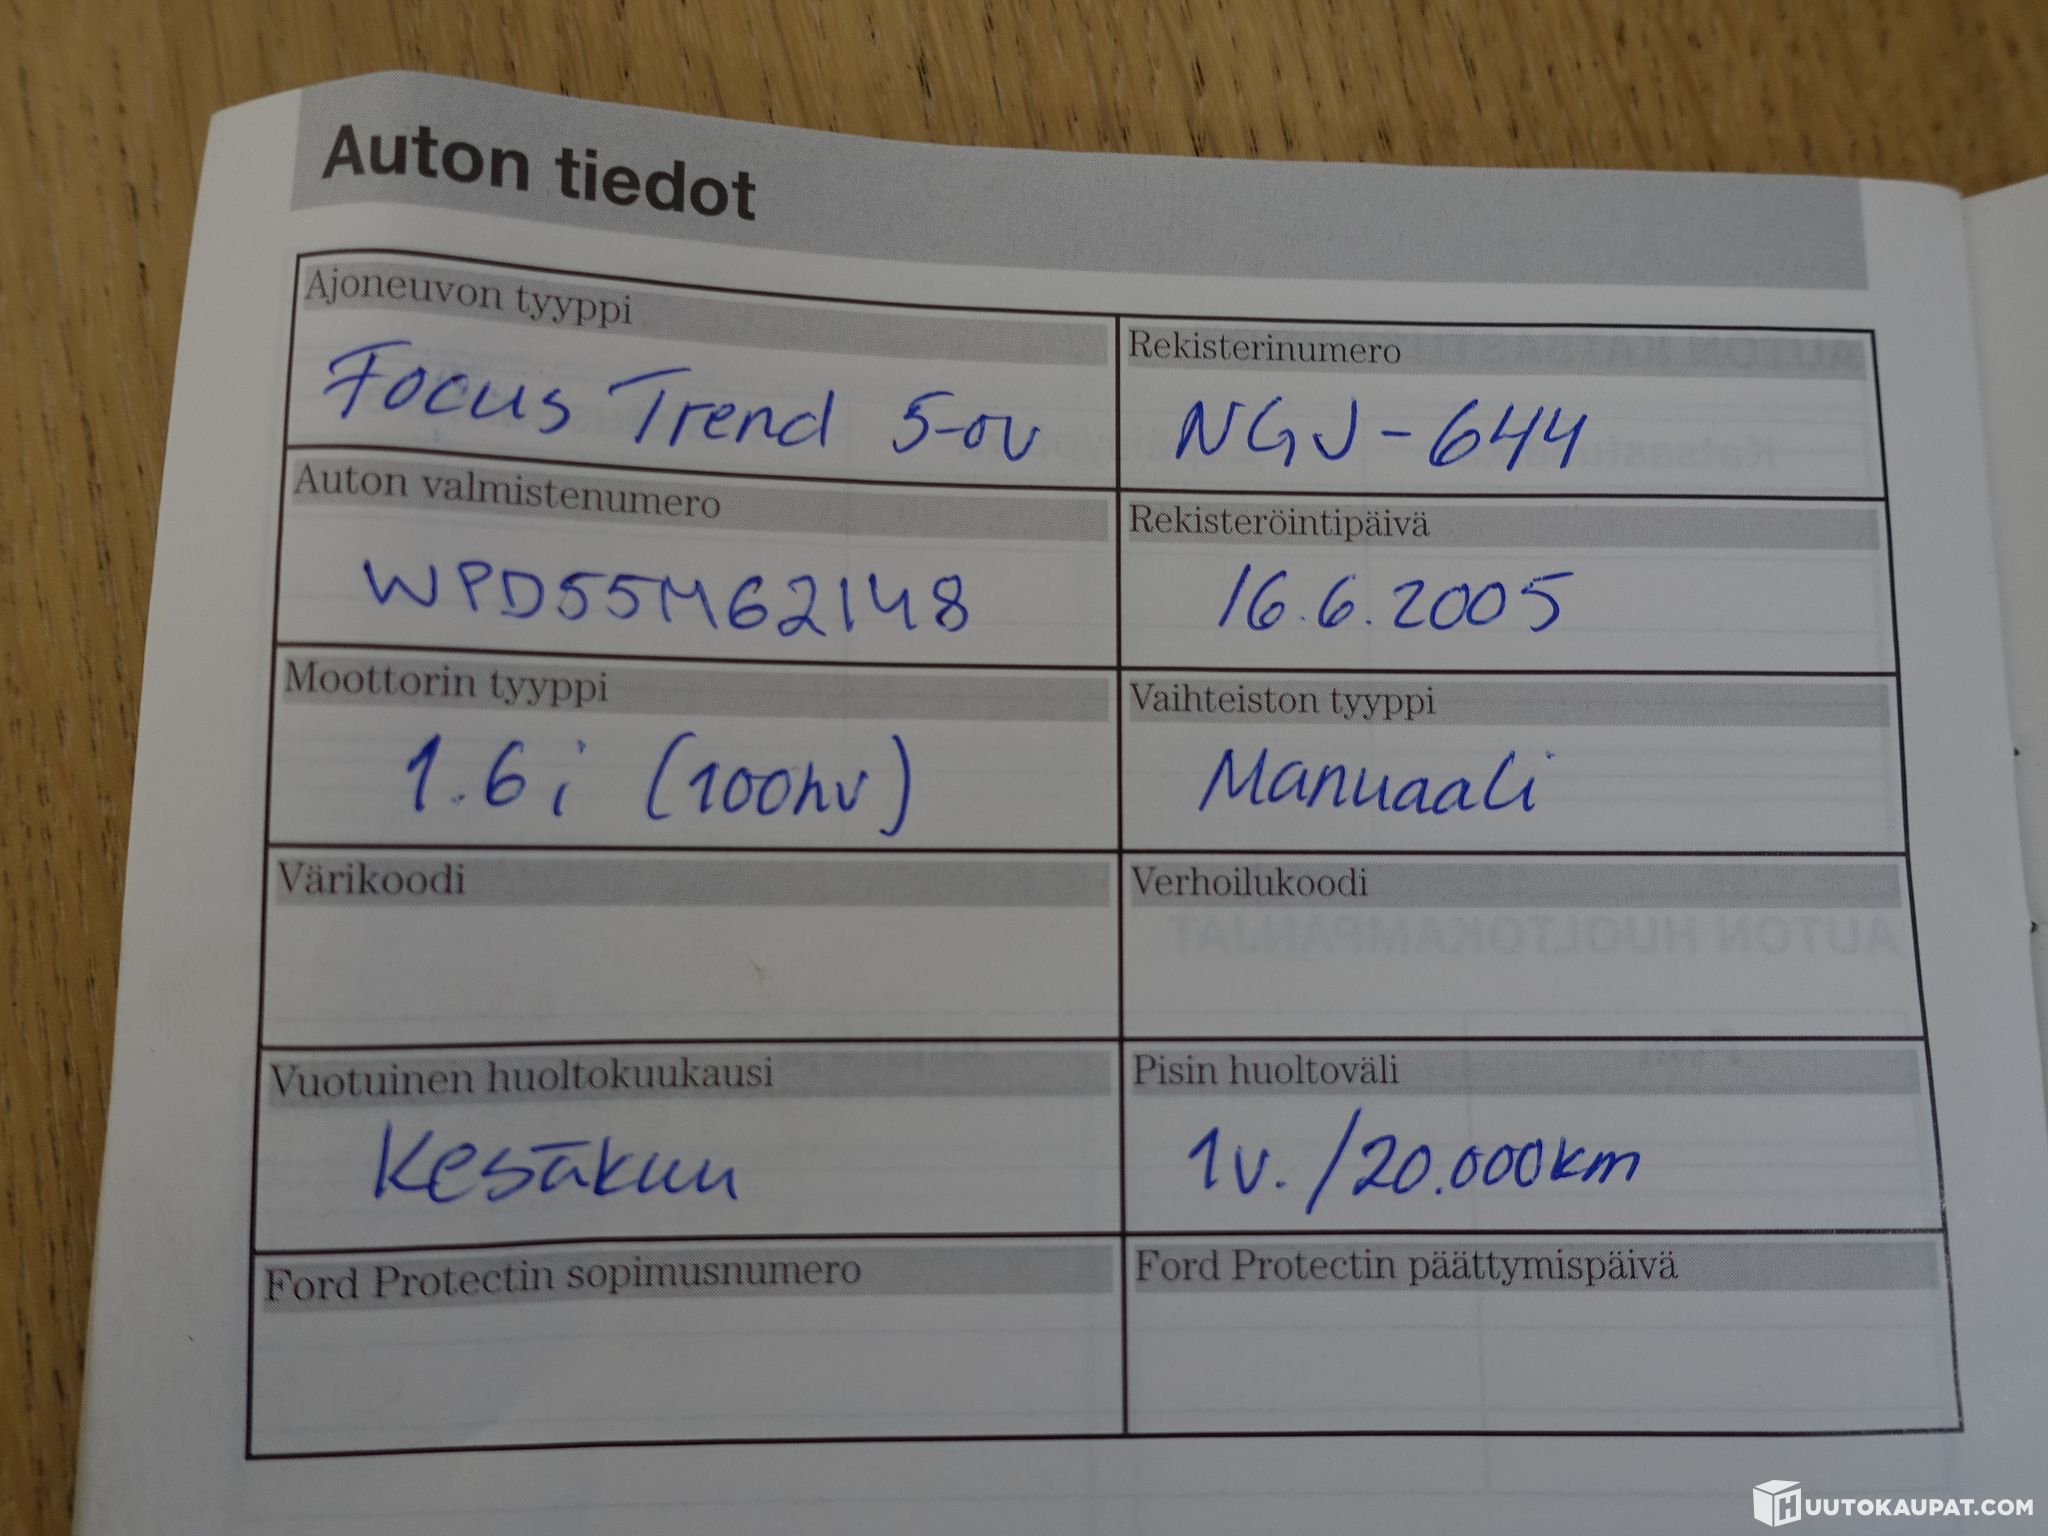 Auton tiedot
Ajoneuvon tyyppi
Focus Trend 5-ov
Rekisterinumero
NGJ-644
Auton valmistenumero
WPD55M62148
Rekisteröintipäivä
16.6.2005
Moottorin tyyppi
1.6i (100hv)
Vaihteiston tyyppi
Manuaali
Värikoodi
Verhoilukoodi
AUTON HUOLTOKAMPANJAT
Vuotuinen huoltokuukausi
Kesäkuu
Pisin huoltoväli
1v. /20.000km
Ford Protectin sopimusnumero
Ford Protectin päättymispäivä
HUUTOKAUPAT.COM